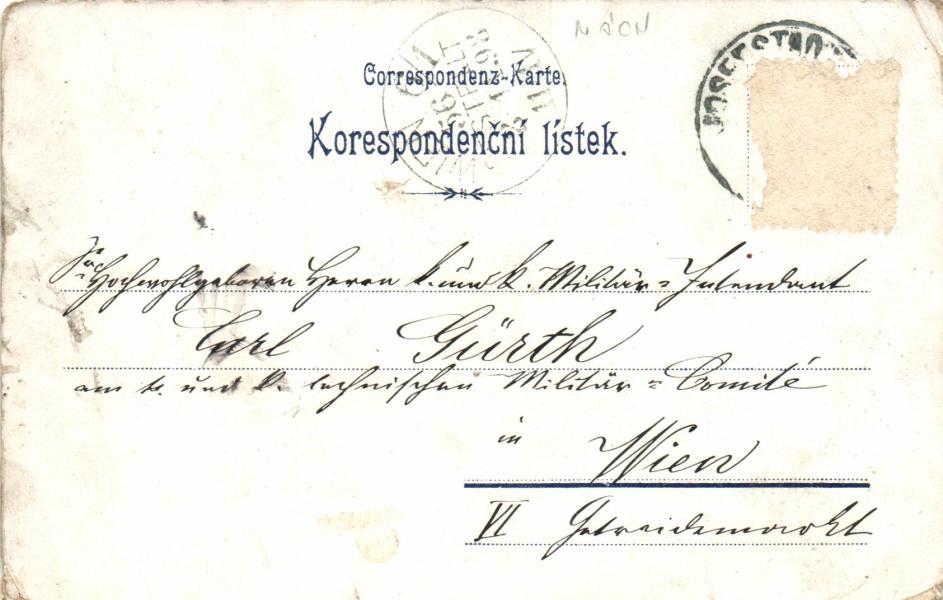 NÁCN
Correspondenz-Karte.
Korespondenční lístek.
WIEN
JOSEFSTADT
Sr Hochwohlgeboren Herrn k. und k. Militär-Intendant
Carl Gürth
am k. und k. technischen Militär-Comité
in Wien
VI Getreidemarkt